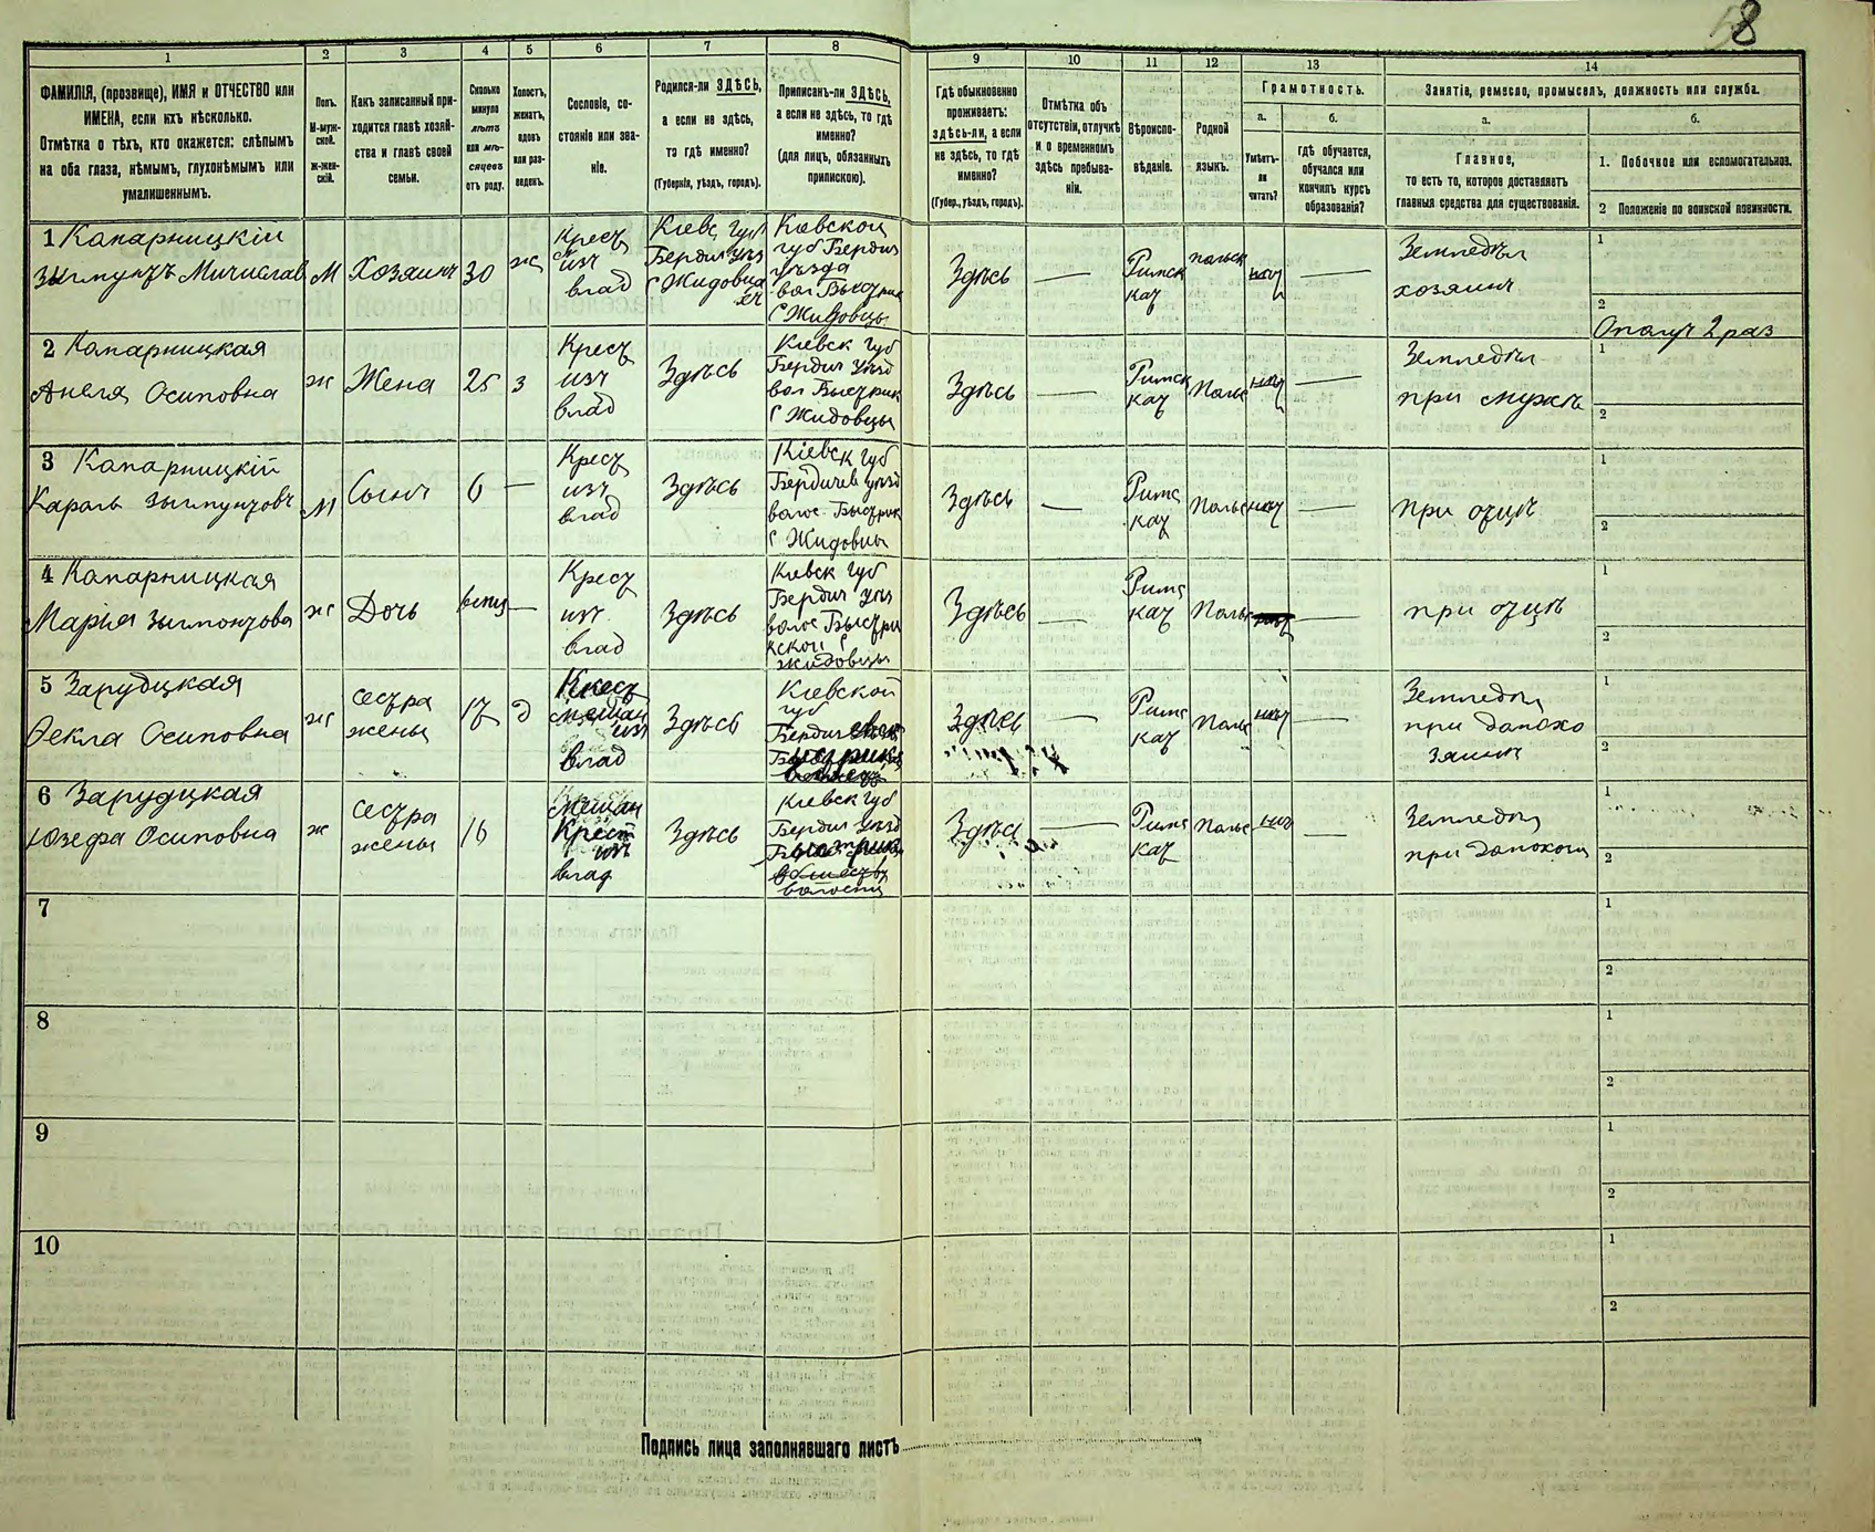 58
1
2
3
4
5
6
7
8
9
10
11
12
13
14
ФАМИЛІЯ, (прозвище), ИМЯ и ОТЧЕСТВО или
ИМЕНА, если ихъ нѣсколько.
Отмѣтка о тѣхъ, кто окажется: слѣпымъ
на оба глаза, нѣмымъ, глухонѣмымъ или
умалишеннымъ.
Полъ.
М-муж-
ской.
ж-жен-
скій.
Какъ записанный при-
ходится главѣ хозяй-
ства и главѣ своей
семьи.
Сколько
минуло
лѣтъ
или мѣ-
сяцевъ
отъ роду.
Холостъ,
женатъ,
вдовъ
или раз-
веденъ.
Сословіе, со-
стояніе или зва-
ніе.
Родился-ли ЗДѢСЬ,
а если не здѣсь,
то гдѣ именно?
(Губернія, уѣздъ, городъ).
Приписанъ-ли ЗДѢСЬ,
а если не здѣсь, то гдѣ
именно?
(для лицъ, обязанныхъ
припискою).
Гдѣ обыкновенно
проживаетъ:
здѣсь-ли, а если
не здѣсь, то гдѣ
именно?
(Губер., уѣздъ, городъ).
Отмѣтка объ
отсутствіи, отлучкѣ
и о временномъ
здѣсь пребыва-
ніи.
Вѣроиспо-
вѣданіе.
Родной
языкъ.
Грамотность.
а.
Умѣетъ-
ли
читать?
б.
гдѣ обучается,
обучался или
кончилъ курсъ
образованія?
Занятіе, ремесло, промыселъ, должность или служба.
а.
Главное,
то есть то, которое доставляетъ
главныя средства для существованія.
б.
1. Побочное или вспомогательное.
2 Положеніе по воинской повинности.
1 Капарницкій
Зыгмунтъ Мичиславъ
М
Хозяинъ
30
ж
Крест
изъ
влад
Кіевс губ
Бердич уѣз
с Жидовца
хъ
Кіевской
губ Бердич
уѣзда
вол Быстрик
с Жидовцы
Здѣсь
—
Римск
кат
польск
нѣт
—
Земледѣл
хозяинъ
1
2
Ополч 2 раз
2 Капарницкая
Анеля Осиповна
ж
Жена
25
з
Крест
изъ
влад
Здѣсь
Кіевск губ
Бердич уѣзд
вол Быстрик
с Жидовцы
Здѣсь
—
Римск
кат
Польс
нѣт
—
Земледѣл
при мужѣ
1
2
3 Капарницкій
Кароль Зыгмунтовъ
М
Сынъ
6
—
Крест
изъ
влад
Здѣсь
Кіевск губ
Бердичев уѣзд
волос Быстрик
с Жидовцы
Здѣсь
—
Римс
кат
Польс
нѣт
—
при отцѣ
1
2
4 Капарницкая
Марія Зыгмонтова
ж
Дочь
—
Крест
изъ
влад
Здѣсь
Кіевск губ
Бердич уѣз
волос Быстри
кской с
Жидовцы
Здѣсь
—
Римс
кат
Польс
—
при отцѣ
1
2
5 Зарудцкая
Фекла Осиповна
ж
сестра
жены
17
д
Крест
мещан
изъ
влад
Здѣсь
Кіевской
губ
Бердич
Здѣсь
—
Римс
кат
Польс
нѣт
—
Земледѣл
при домохо
зяинѣ
1
2
6 Зарудцкая
Юзефа Осиповна
ж
сестра
жены
16
мещан
Крест
изъ
влад
Здѣсь
Кіевск губ
Бердич уѣзд
волости
Здѣсь
—
Римс
кат
Польс
нѣт
—
Земледѣл
при домохозя
1
2
7
1
2
8
1
2
9
1
2
10
1
2
Подпись лица заполнявшаго листъ